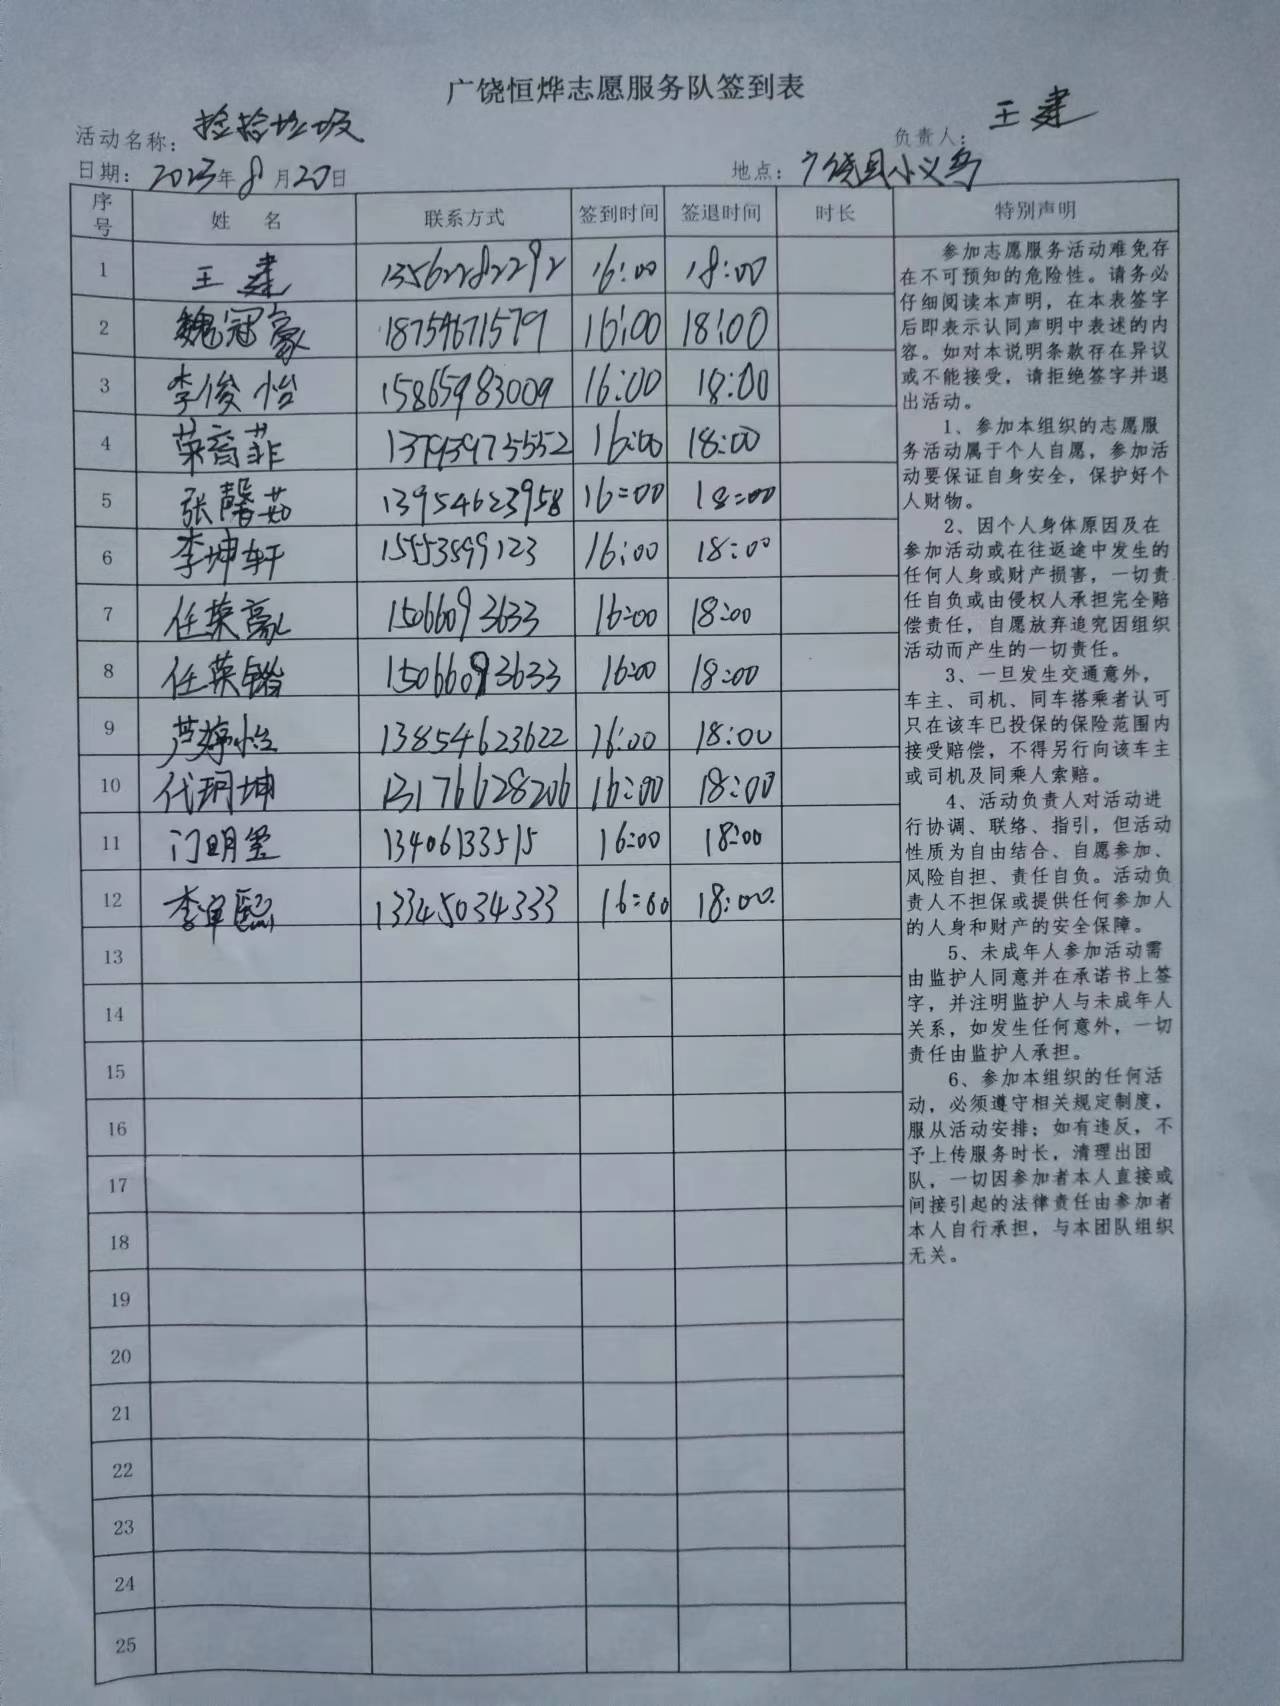 广饶恒烨志愿服务队签到表
活动名称：捡拾垃圾 负责人：王建
日期：2023年8月20日 地点：广饶县小义乌
序号 姓名 联系方式 签到时间 签退时间 时长 特别声明
1 王建 13562282292 16:00 18:00
2 魏冠豪 18754671579 16:00 18:00
3 李俊怡 15865983009 16:00 18:00
4 荣裔菲 16:00 18:00
5 张馨茹 13954623958 16:00 18:00
6 李坤轩 16:00 18:00
7 任荣豪 15066093633 16:00 18:00
8 任英 15066093633 16:00 18:00
9 芦婷怡 13854623622 16:00 18:00
10 代玥坤 13176628206 16:00 18:00
11 门明玺 13406133515 16:00 18:00
12 李 熙 13345034333 16:00 18:00
13
14
15
16
17
18
19
20
21
22
23
24
25
参加志愿服务活动难免存
在不可预知的危险性。请务必
仔细阅读本声明，在本表签字
后即表示认同声明中表述的内
容。如对本说明条款存在异议
或不能接受，请拒绝签字并退
出活动。
1、参加本组织的志愿服
务活动属于个人自愿，参加活
动要保证自身安全，保护好个
人财物。
2、因个人身体原因及在
参加活动或在往返途中发生的
任何人身或财产损害，一切责
任自负或由侵权人承担完全赔
偿责任，自愿放弃追究因组织
活动而产生的一切责任。
3、一旦发生交通意外，
车主、司机、同车搭乘者认可
只在该车已投保的保险范围内
接受赔偿，不得另行向该车主
或司机及同乘人索赔。
4、活动负责人对活动进
行协调、联络、指引，但活动
性质为自由结合、自愿参加、
风险自担、责任自负。活动负
责人不担保或提供任何参加人
的人身和财产的安全保障。
5、未成年人参加活动需
由监护人同意并在承诺书上签
字，并注明监护人与未成年人
关系，如发生任何意外，一切
责任由监护人承担。
6、参加本组织的任何活
动，必须遵守相关规定制度，
服从活动安排；如有违反，不
予上传服务时长，清理出团
队，一切因参加者本人直接或
间接引起的法律责任由参加者
本人自行承担，与本团队组织
无关。